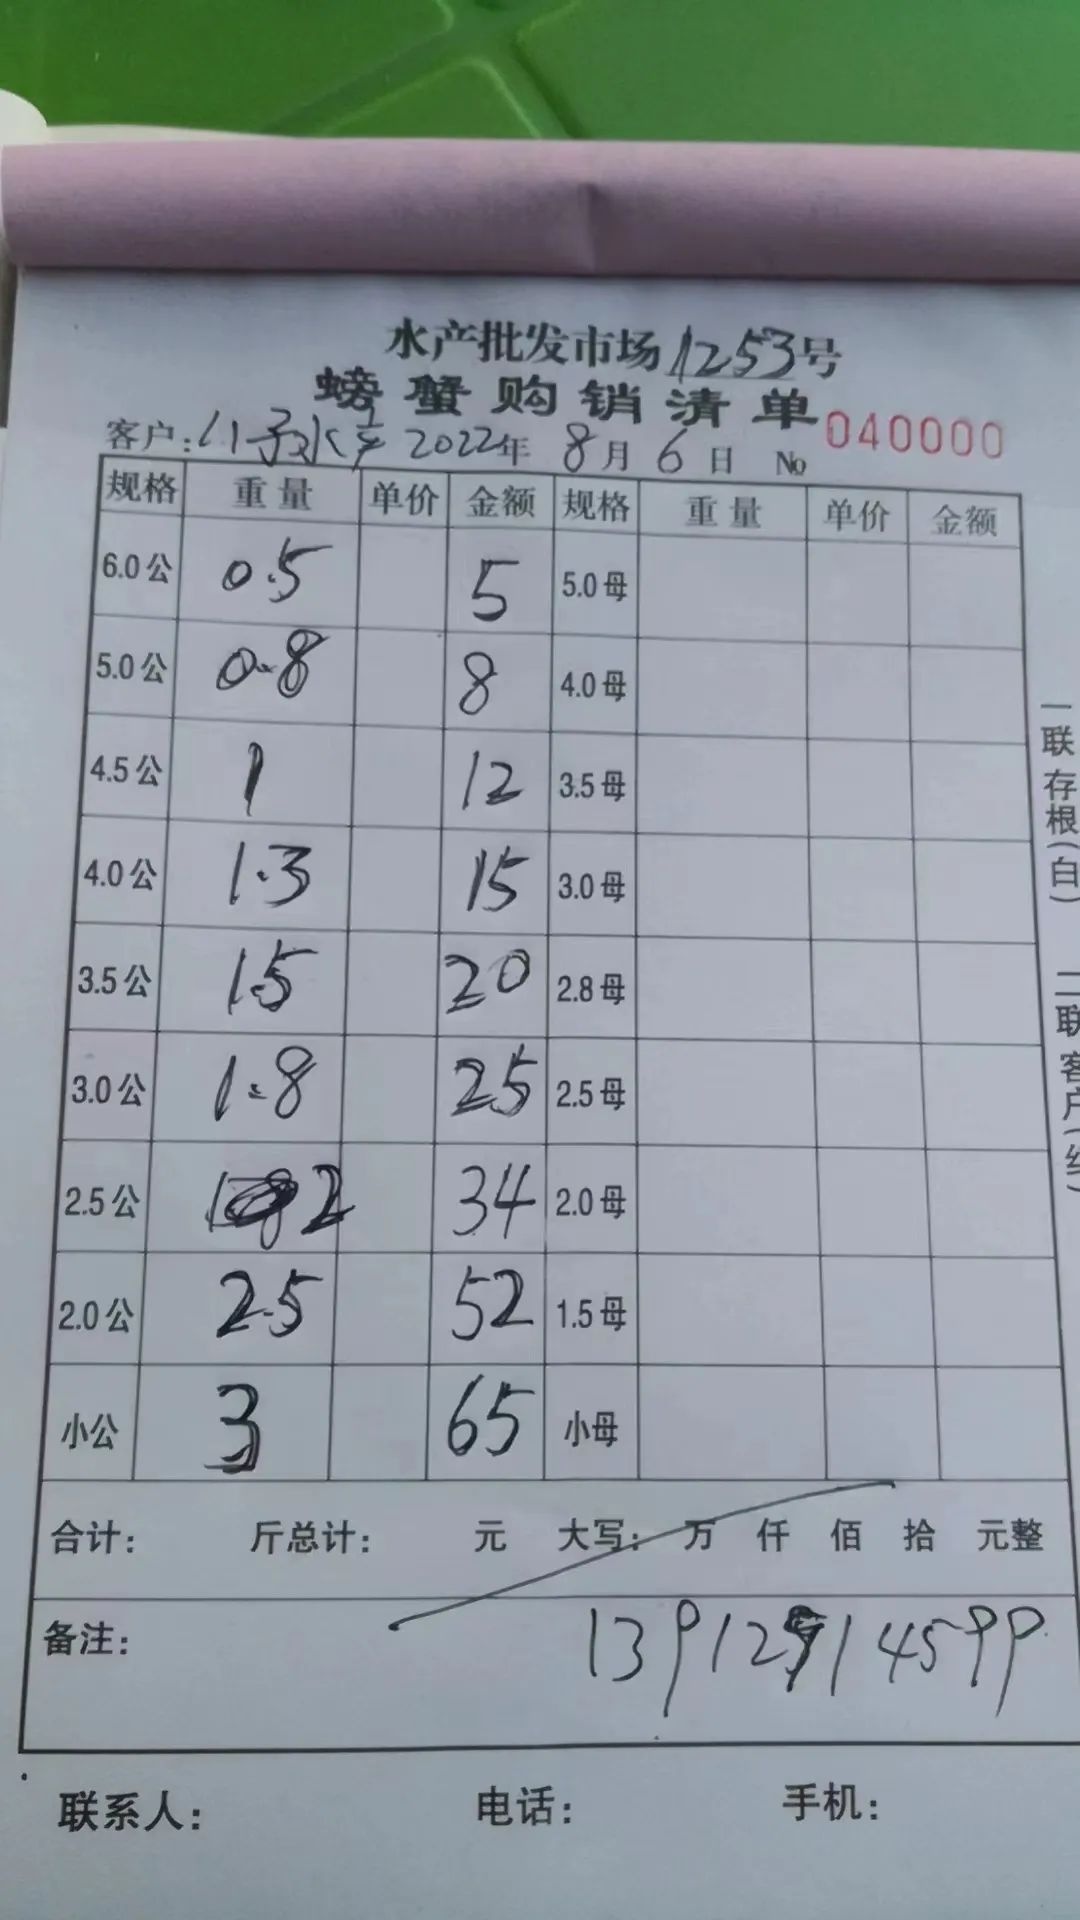 水产批发市场1253号
螃蟹购销清单
040000
客户: 2022年 8月 6日 No
规格 重量 单价 金额 规格 重量 单价 金额
6.0公 0.5 5 5.0母
5.0公 0.8 8 4.0母
4.5公 1 12 3.5母
4.0公 1.3 15 3.0母
3.5公 1.5 20 2.8母
3.0公 1.8 25 2.5母
2.5公 2 34 2.0母
2.0公 2.5 52 1.5母
小公 3 65 小母
合计: 斤总计: 元 大写: 万 仟 佰 拾 元整
备注:
联系人: 电话: 手机:
一联存根(白)
二联客户(红)